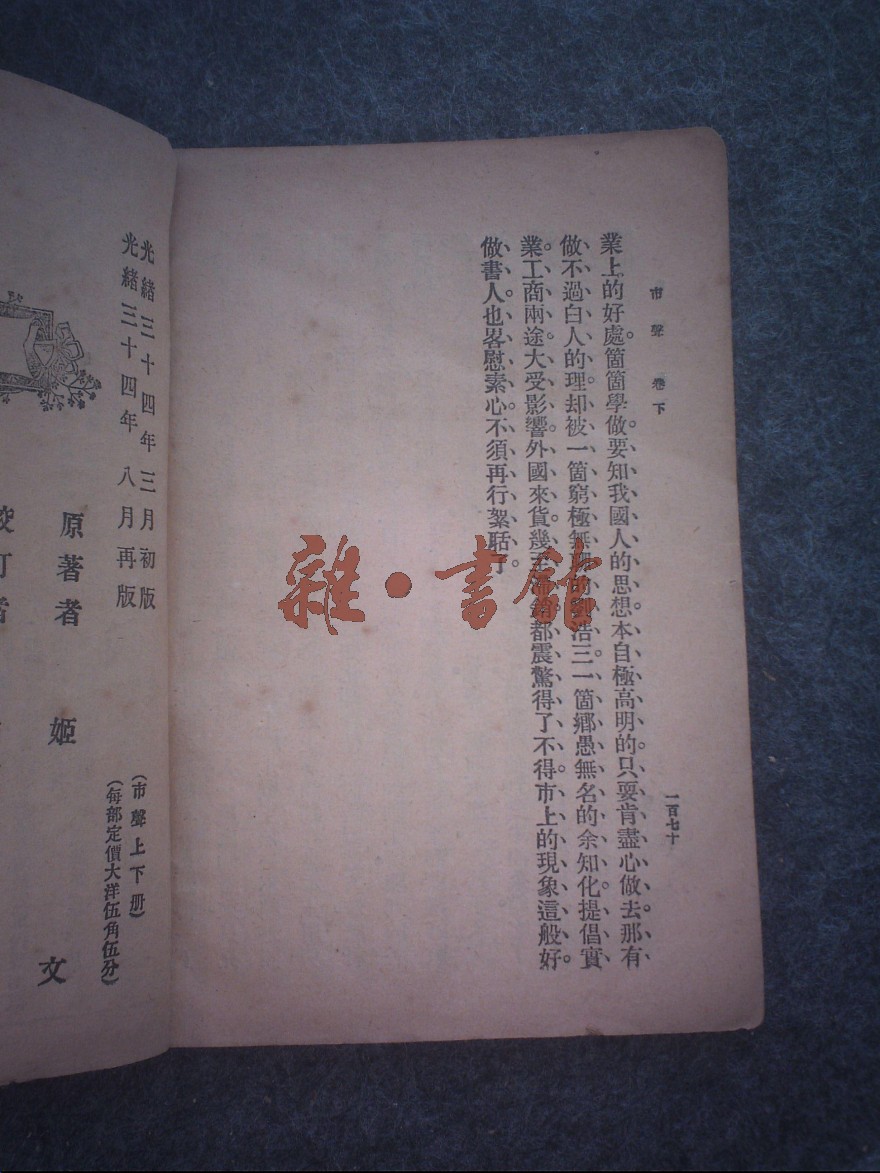 市聲 卷下
一百七十
業上的好處。箇箇學做。要知我國人的思想。本自極高明的。只要肯盡心做去。那有
做不過白人的理。却被一箇窮極無 浩三。一箇鄉愚無名的余知化。提倡實
業。工商兩途。大受影響。外國來貨。幾至 都震驚得了不得。市上的現象這般好。
做書人也畧慰素心。不須再行絮聒了。
雜·書舘
光緒三十四年三月初版
光緒三十四年八月再版
(市聲上下册)
(每部定價大洋伍角伍分)
原著者 姬文
校訂者